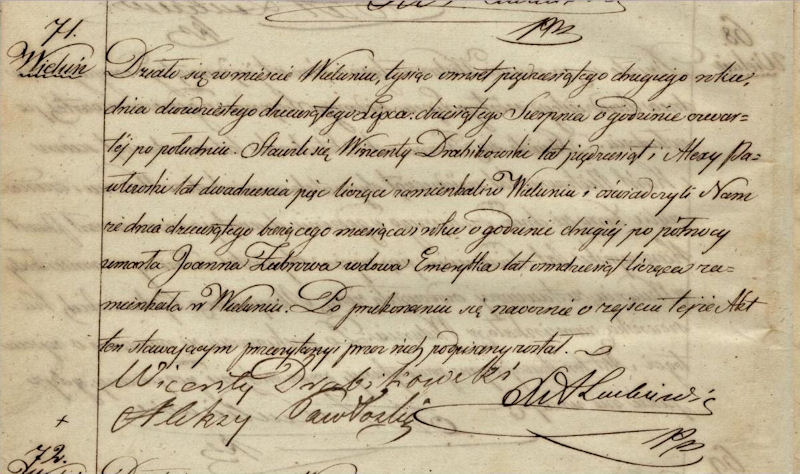 71.
Wieluń
Działo się w mieście Wieluniu, tysiąc ośmset pięćdziesiątego drugiego roku,
dnia dwudziestego dziewiątego Lipca. dziesiątego Sierpnia o godzinie czwar-
téj po południu. Stawili się Wincenty Drabikowski lat pięćdziesiąt i Alexy Pa-
włoski lat dwadzieścia pięc liczący zamieszkali w Wieluniu i oświadczyli Nam
że dnia dziewiątego bieżącego miesiąca i roku o godzinie drugiéj po północy
umarła Joanna Zubrowa wdowa Emerytka lat ośmdziesiąt licząca za-
mieszkała w Wieluniu. Po przekonaniu się naocznie o zejściu tejże Akt
ten stawającym przeczytany i przez nich podpisany został.
Wicenty Drabikowski
Alekzy Pawłoski
72.